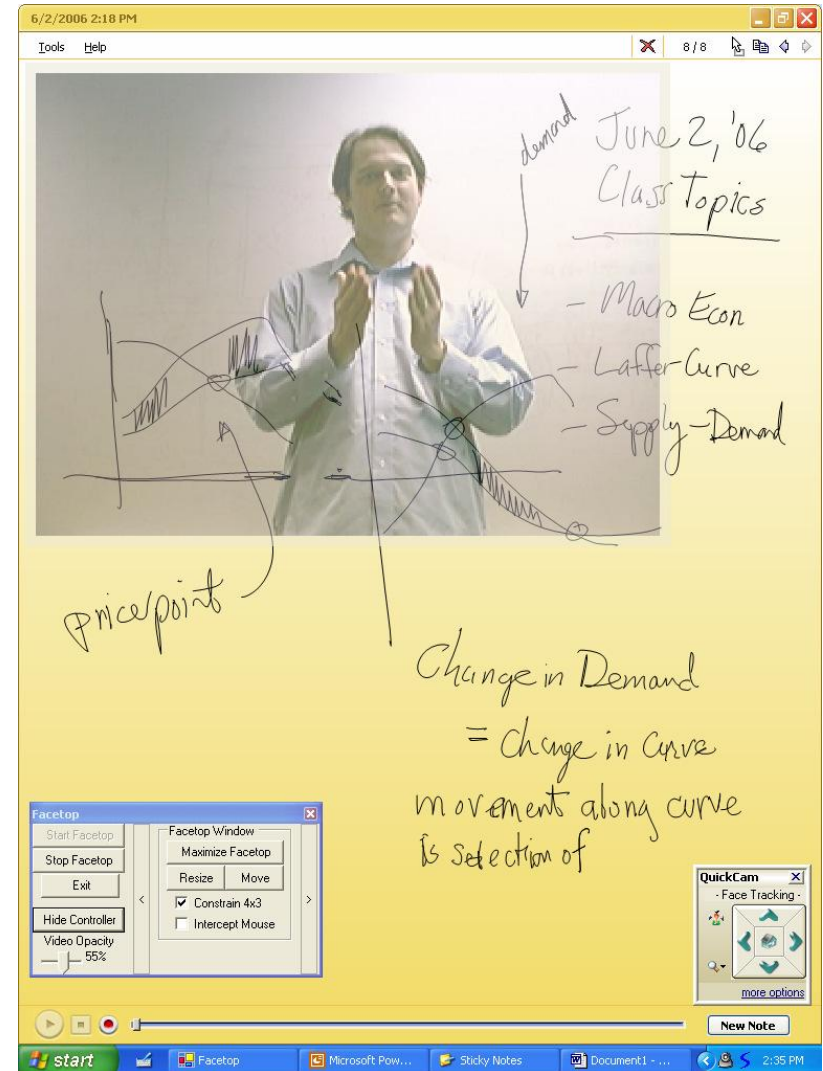 6/2/2006 2:18 PM
Tools Help 8/8
demand
June 2, '06
Class Topics
- Macro Econ
- Laffer Curve
- Supply-Demand
price/point
Change in Demand
= Change in Curve
movement along curve
is selection of
Facetop
Start Facetop
Stop Facetop
Exit
Hide Controller
Video Opacity
55%
<
Facetop Window
Maximize Facetop
Resize Move
Constrain 4x3
Intercept Mouse
>
QuickCam
- Face Tracking -
more options
New Note
start Facetop Microsoft Pow... Sticky Notes Document1 - ... 2:35 PM